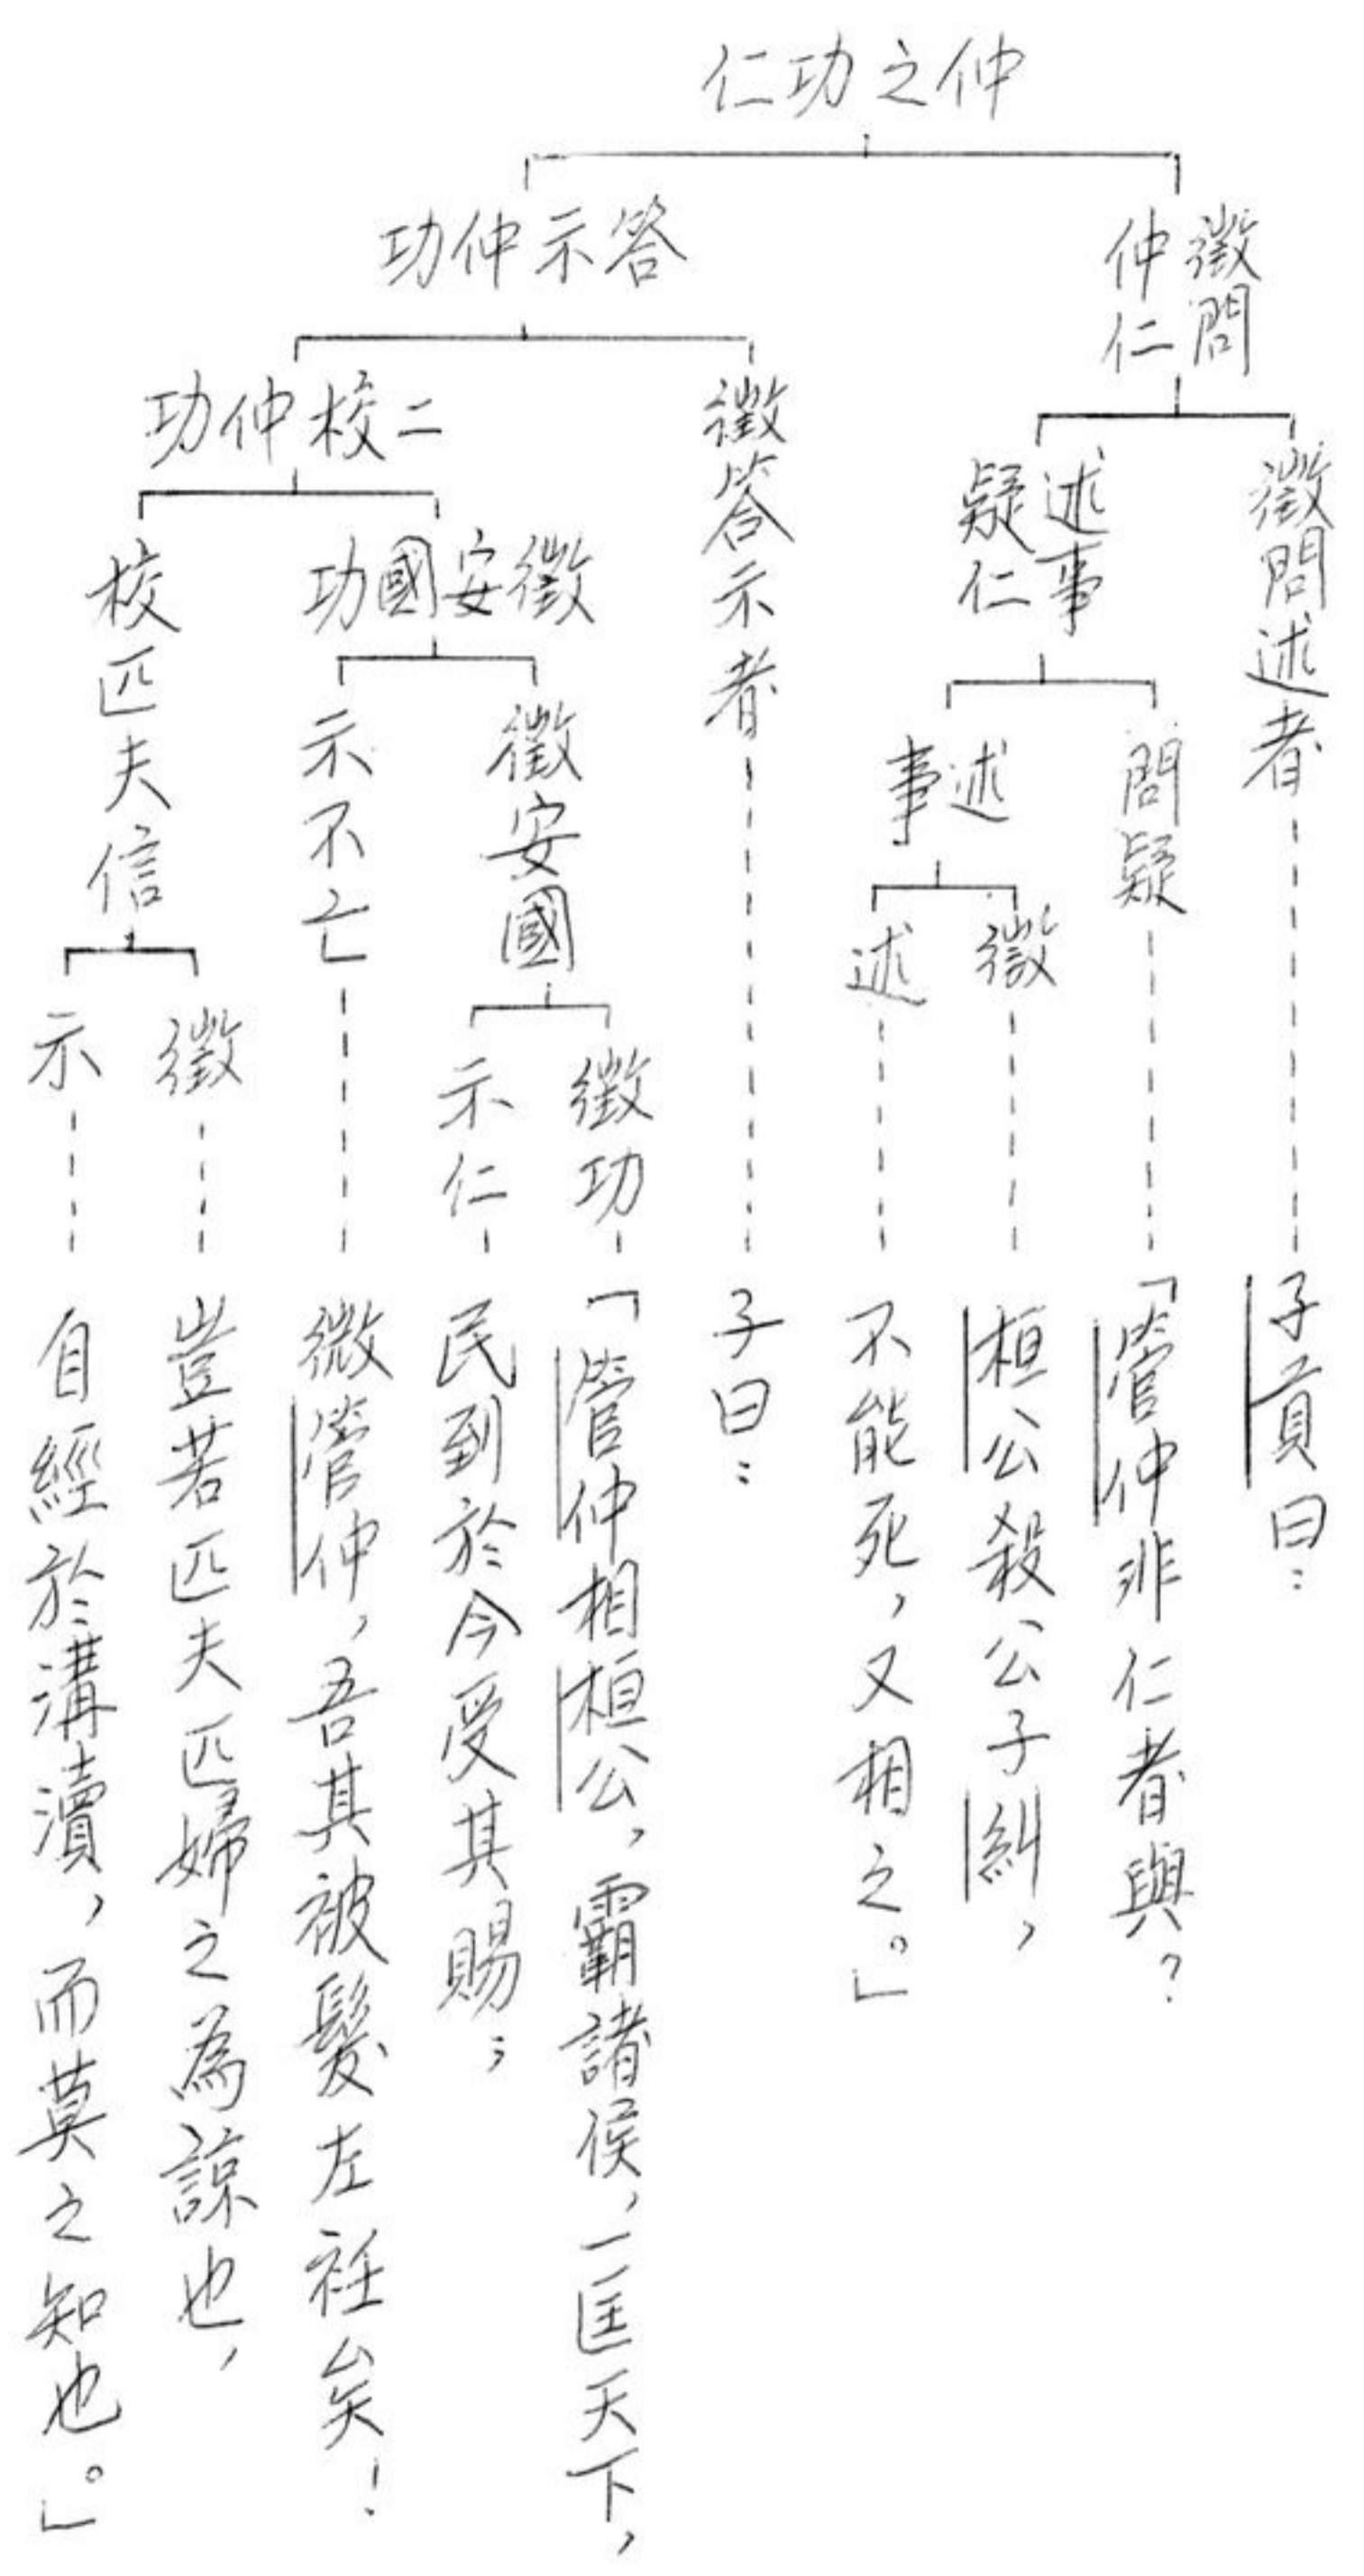 仲之功仁
徵問
仲仁
答示仲功
徵問述者
述事
疑仁
徵答示者
二校仲功
問疑
述事
徵安國功
校匹夫信
徵
述
徵安國
示不亡
徵功
示仁
徵
示
子貢曰：
「管仲非仁者與？
桓公殺公子糾，
不能死，又相之。」
子曰：
「管仲相桓公，霸諸侯，一匡天下，
民到於今受其賜；
微管仲，吾其被髮左衽矣！
豈若匹夫匹婦之為諒也，
自經於溝瀆，而莫之知也。」